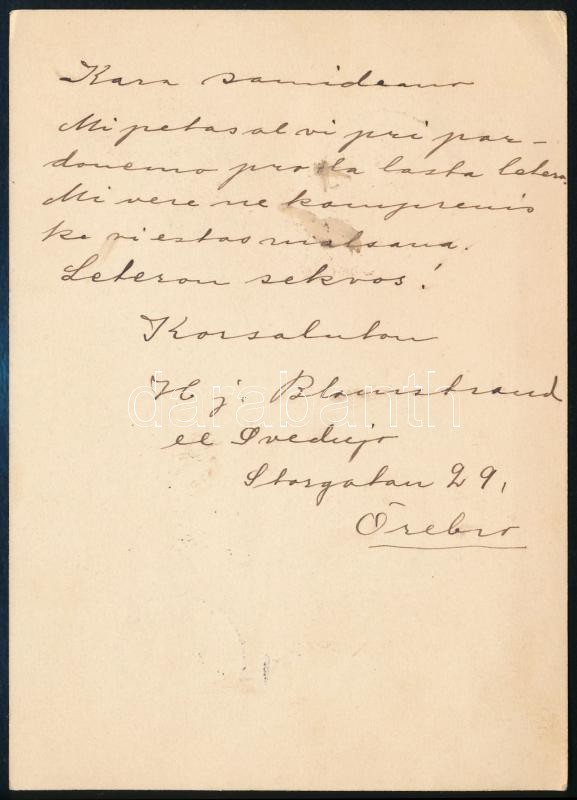 Kara samideano
Mi petas al vi pri par-
donemo pro la lasta letero.
Mi vere ne komprenis
ke vi estas malsana.
Leteron sekvos!
Korsaluton
Hj. Blomstrand
el Svedujo
Storgatan 29,
Örebro
darabanth